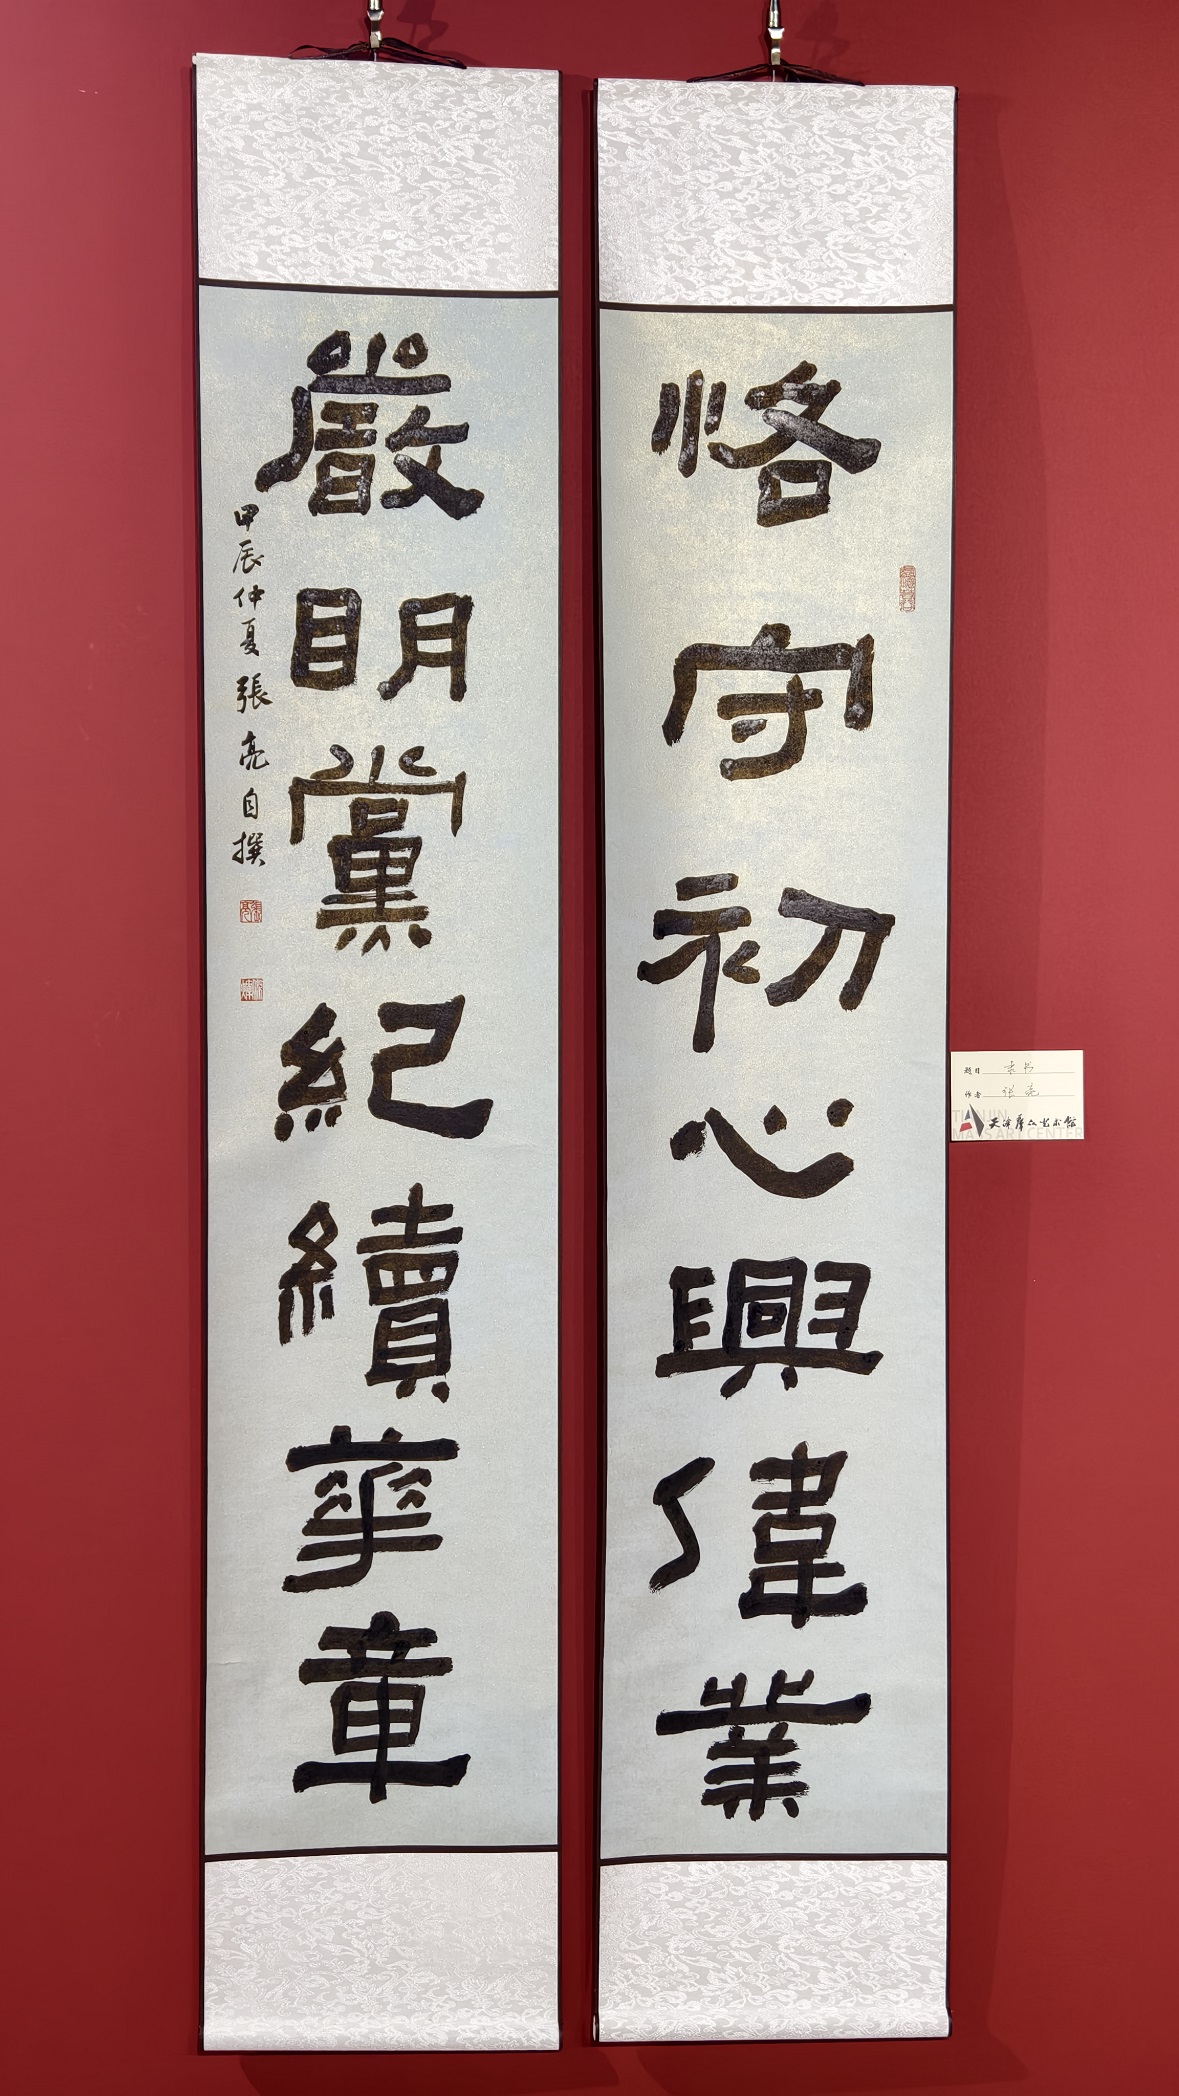 恪守初心興偉業
嚴明黨紀續華章
甲辰仲夏張亮自撰
題目 隶书
作者 张亮
TIANJIN
MASS ART CENTER
天津群众艺术館